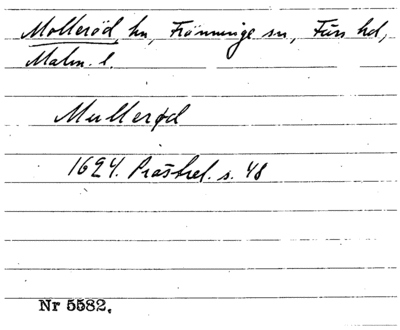 Molleröd hn, Frönninge sn, Färs hd,
Malm. l.
Mullerød
1624. Prästrel. s. 48
Nr 5582.